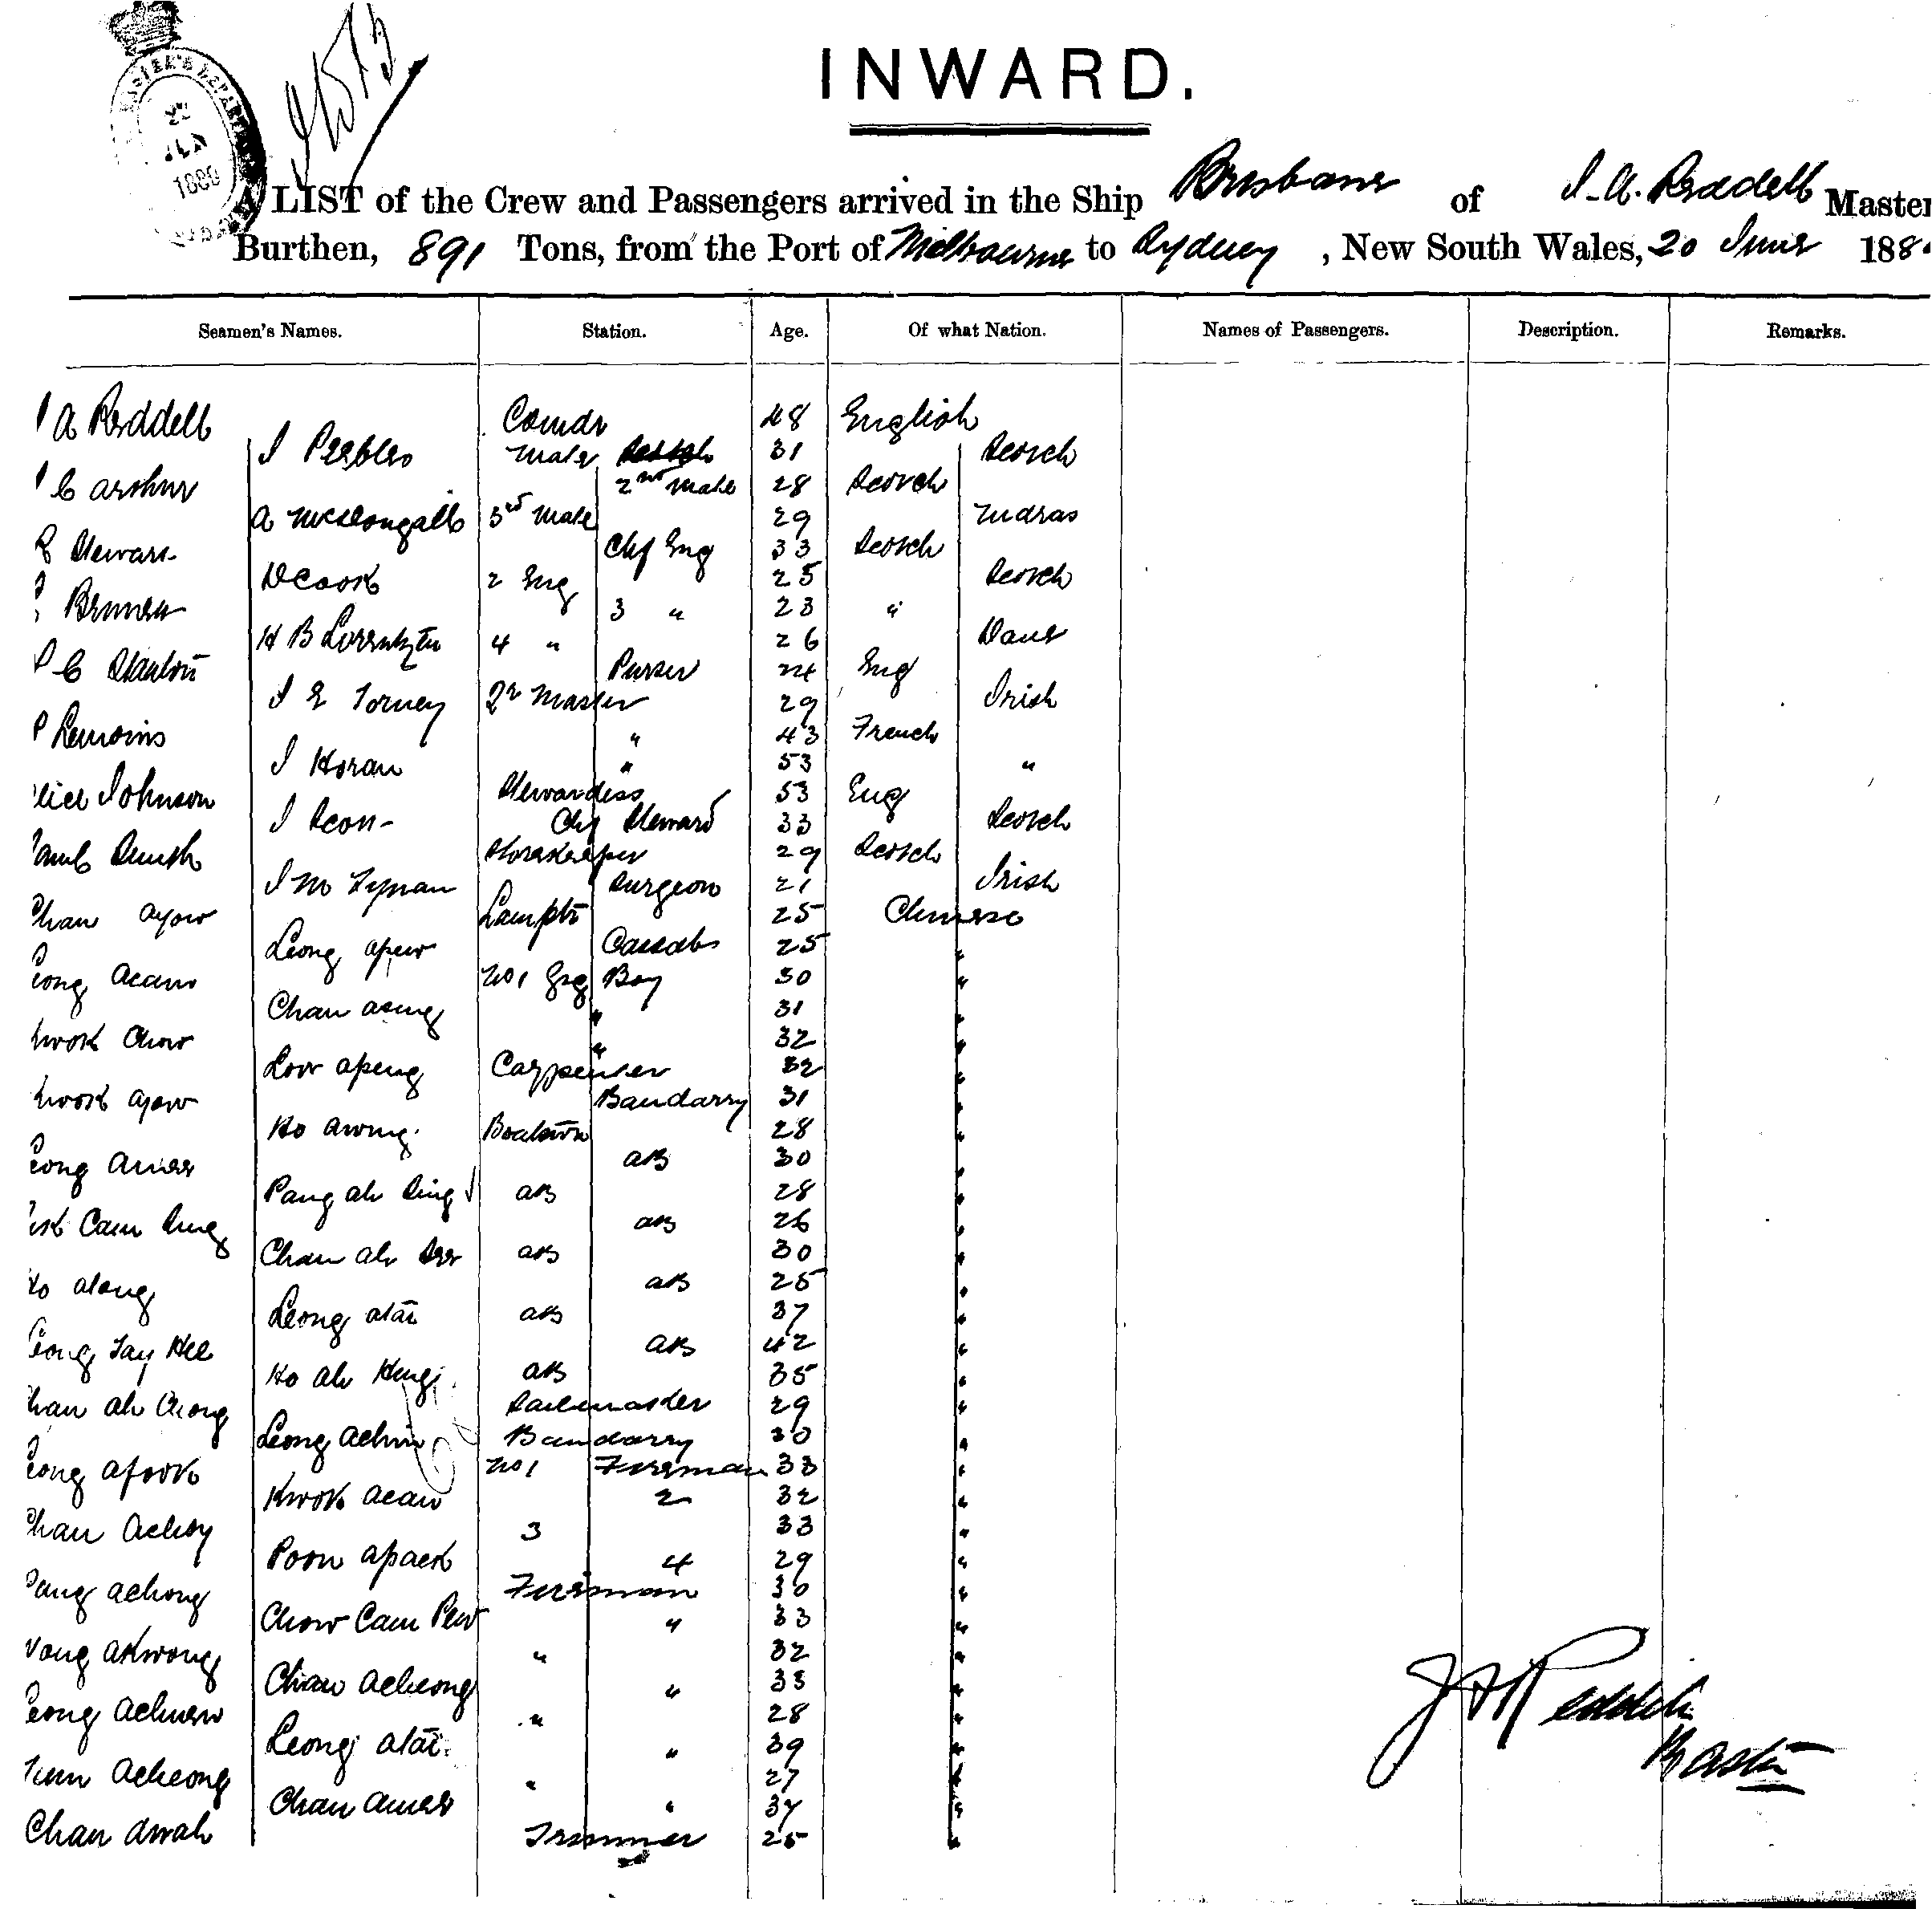 INWARD.
A LIST of the Crew and Passengers arrived in the Ship Brisbane of J. A. Reddell Master
Burthen, 891 Tons, from the Port of Melbourne to Sydney, New South Wales, 20 June 188
Seamen's Names. Station. Age. Of what Nation. Names of Passengers. Description. Remarks.
A Reddell Comdr 48 English
J Peebles Mate 31 Scotch
C Arthur 2nd Mate 28 Scotch
A McDougall 3rd Mate 29 Madras
Stewart Chf Eng 33 Scotch
D Cook 2 Eng 25 Scotch
3 " 23 "
H B Lorentzen 4 " 26 Dane
C Stanton Purser 24 Eng
J E Torney Qr Master 29 Irish
P Lemoins " 43 French
J Horan " 53 "
lice Johnson Stewardess 53 Eng
J Scott Chf Steward 33 Scotch
Smith Storekeeper 29 Scotch
J M Tynan Surgeon 21 Irish
Chan Ayow Lamptr 25 Chinese
Leong Apew Cassab 25 "
eong Acam No 1 Eng Boy 30 "
Chan Asing " 31 "
kwok Chow " 32 "
Low Apeng Carpenter 32 "
kwok Ayow Bandarry 31 "
Ho Awing Boatswn 28 "
eong Amee AB 30 "
Pang Ah Sing AB 28 "
Cam Sing AB 26 "
Chan Ah See AB 30 "
Ho Along AB 25 "
Leong Atai AB 37 "
eong Tay Hee AB 42 "
Ho Ah Hing AB 35 "
han Ah Chong Sailmaker 29 "
Leong Achin Bandarry 30 "
eong Afook No 1 Fireman 33 "
Kwok Acan 2 32 "
Chan Achoy 3 33 "
Poon Apack 4 29 "
Pang Achong Fireman 30 "
Chow Cam Pew " 33 "
Wong Akwong " 32 "
Chan Acheong " 33 "
eong Achuen " 28 "
Leong Atai " 39 "
Acheong " 27 "
Chan Amee " 37 "
Chan Awah Trimmer 25 "
J A Reddell
Master